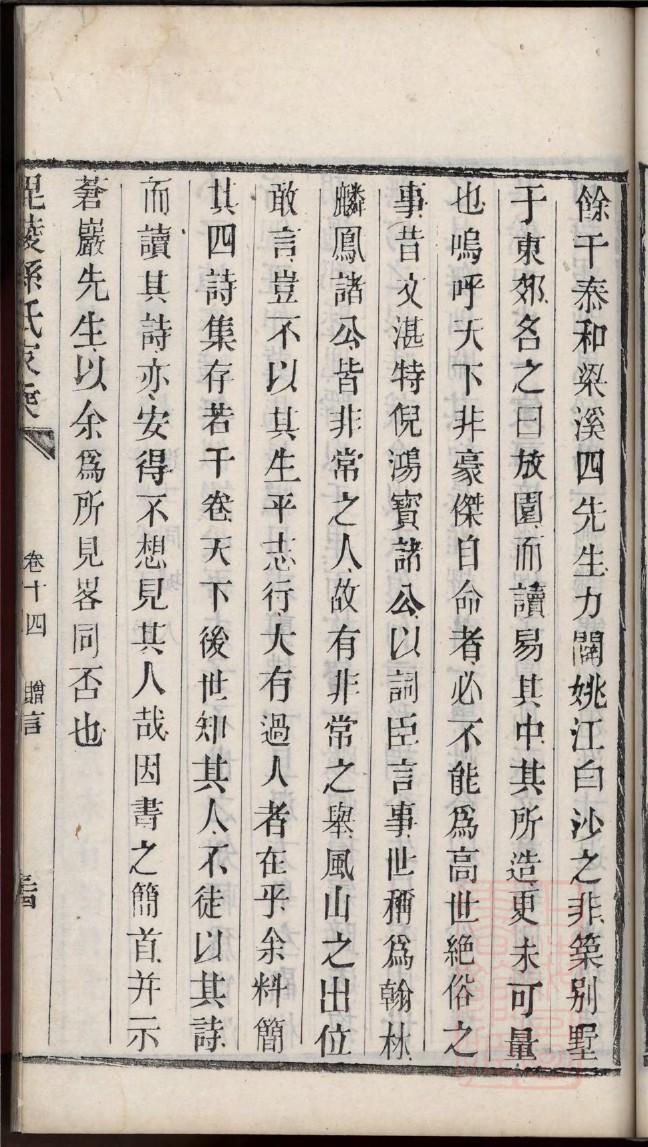 餘干泰和梁溪四先生力闢姚江白沙之非築別墅
于東郊名之曰放園而讀易其中其所造更未可量
也嗚呼天下非豪傑自命者必不能爲高世絶俗之
事昔文湛特倪鴻寳諸公以詞臣言事世稱爲翰林
麟鳳諸公皆非常之人故有非常之舉風山之出位
敢言豈不以其生平志行大有過人者在乎余料簡
其四詩集存若干卷天下後世知其人不徒以其詩
而讀其詩亦安得不想見其人哉因書之簡首并示
蒼巖先生以余爲所見畧同否也
毘陵孫氏家乘
卷十四 贈言